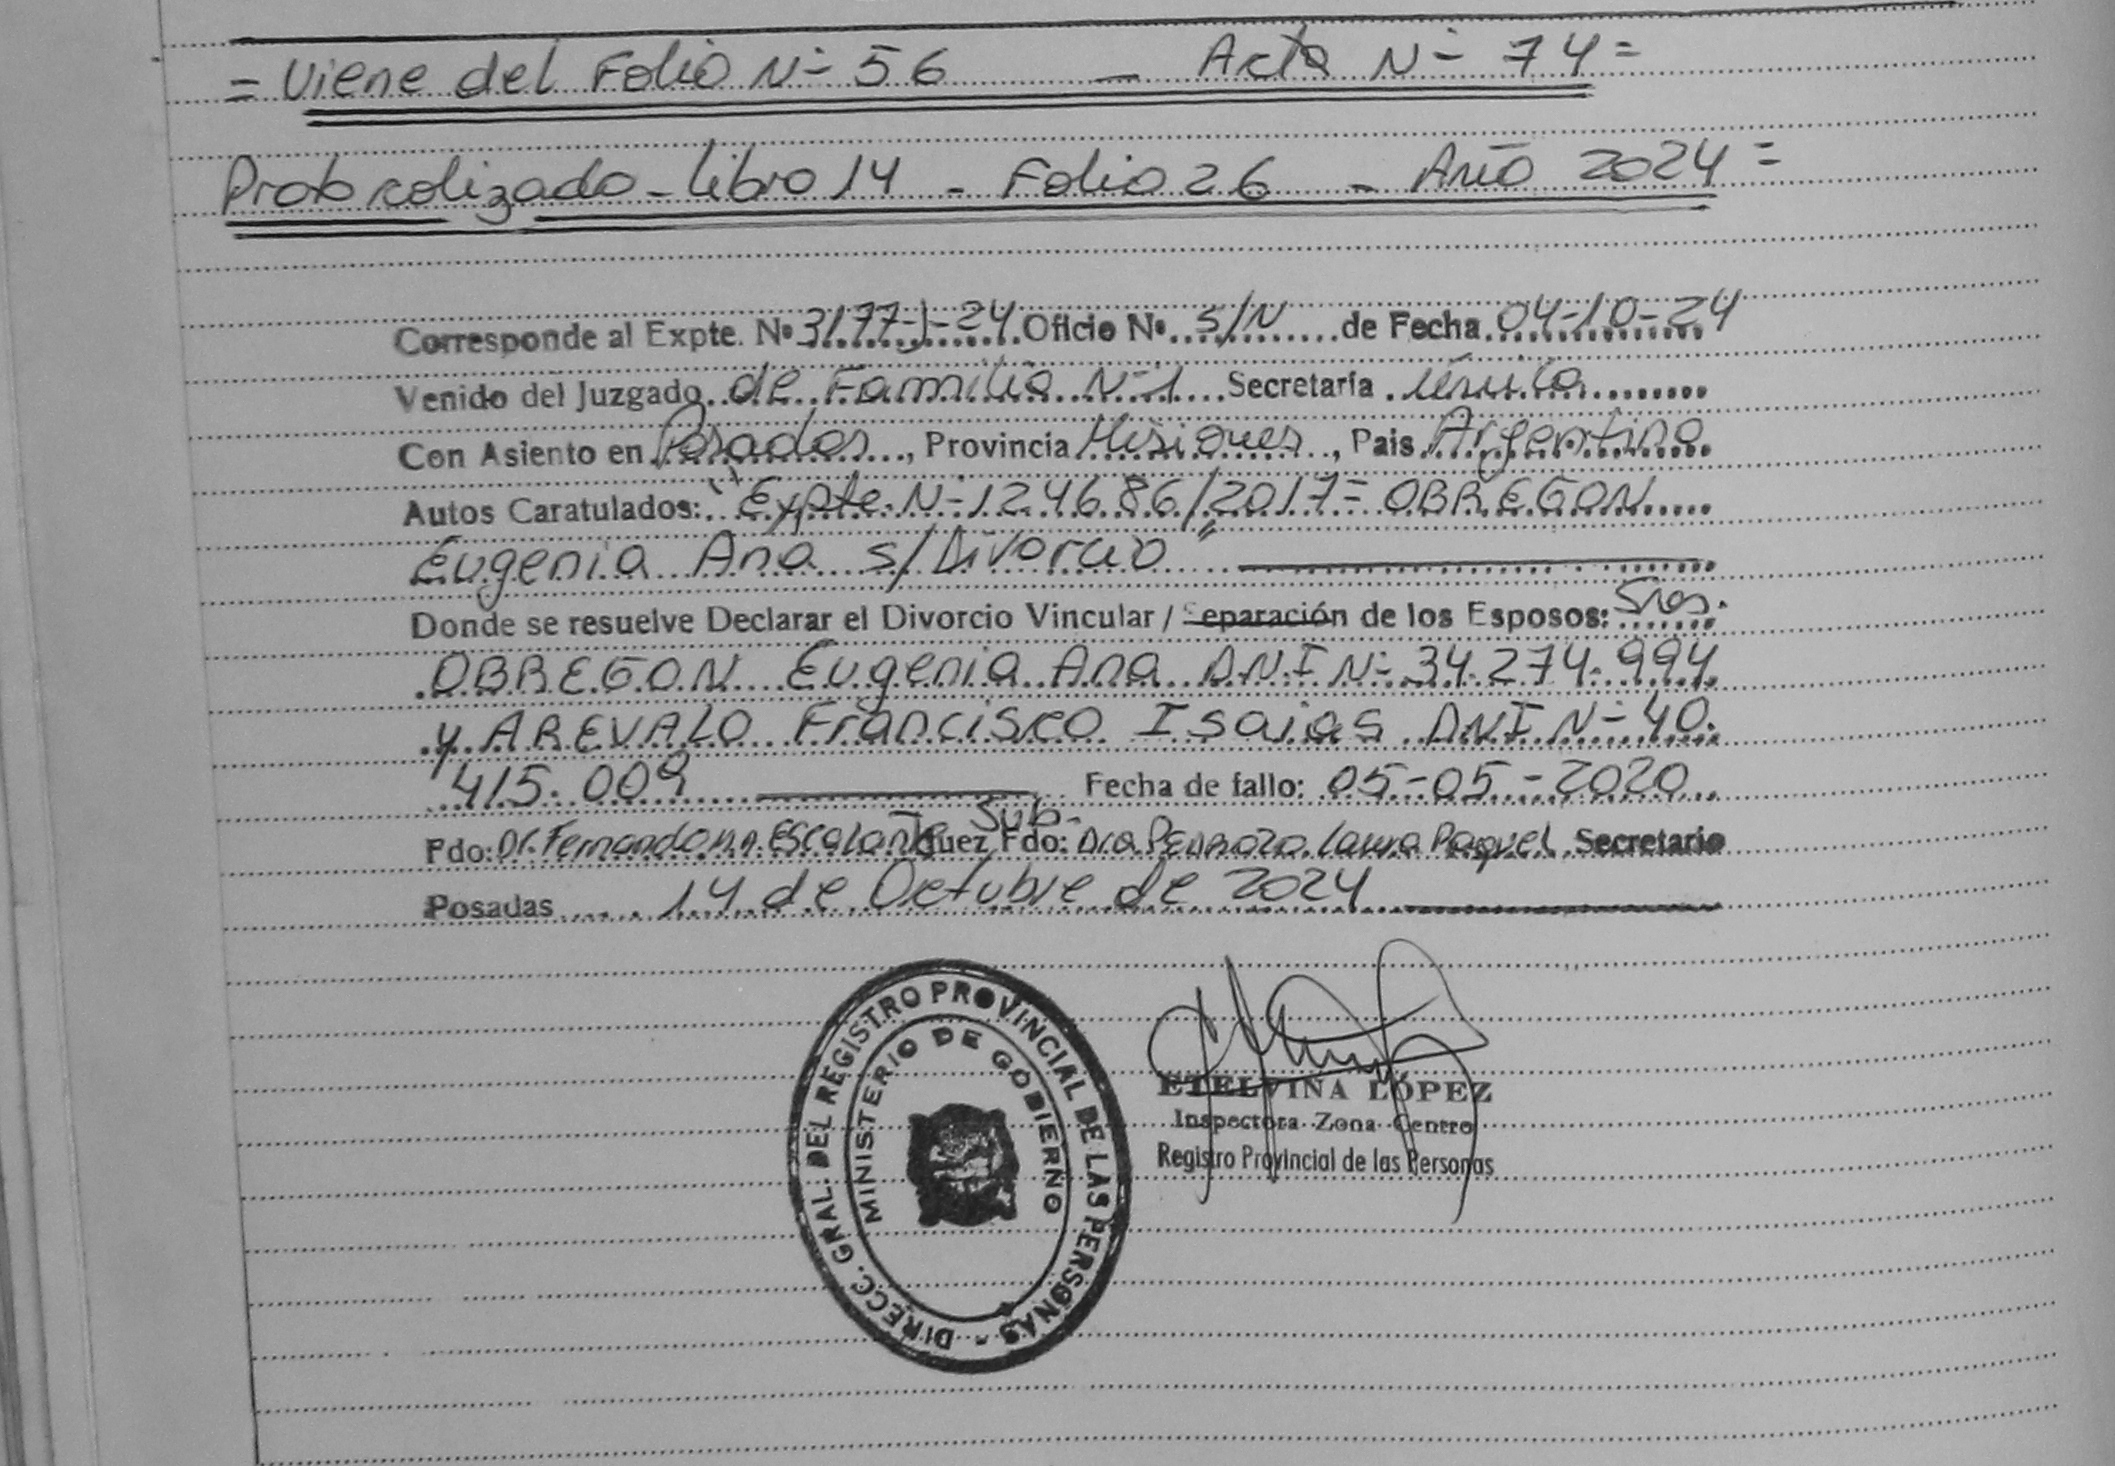 = Viene del Folio Nº 56 — Acta Nº 74 =
Protocolizado - Libro 14 - Folio 26 - Año 2024 =
Corresponde al Expte. Nº 3177-J-24 Oficio Nº S/N de Fecha 04-10-24
Venido del Juzgado de Familia Nº 1 Secretaría única
Con Asiento en Posadas, Provincia Misiones, Pais Argentina
Autos Caratulados: "Expte Nº 124686/2017 = OBREGON
Eugenia Ana s/Divorcio"
Donde se resuelve Declarar el Divorcio Vincular / Separación de los Esposos: Sres.
OBREGON Eugenia Ana DNI Nº 34.274.994
y AREVALO Francisco Isaias DNI Nº 40.
415.009 Fecha de fallo: 05-05-2020
Fdo: Dr. Fernando Escalante Juez Fdo: Dra Pedrozo Laura Raquel Sub. Secretario
Posadas 14 de Octubre de 2024
DIRECC. GRAL. DEL REGISTRO PROVINCIAL DE LAS PERSONAS -
MINISTERIO DE GOBIERNO
ETELVINA LÓPEZ
Inspectora Zona Centro
Registro Provincial de las Personas